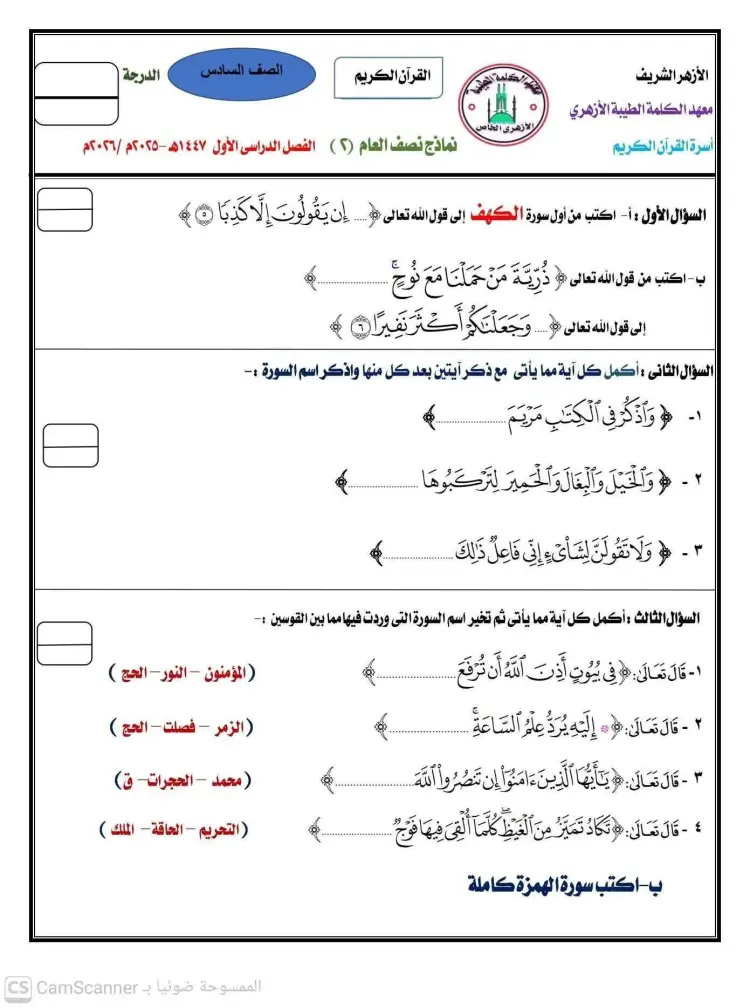 الأزهر الشريف
معهد الكلمة الطيبة الأزهري
أسرة القرآن الكريم
معهد الكلمة الطيبة
الأزهرى الخاص
القرآن الكريم
الصف السادس
الدرجة
نماذج نصف العام (٢) الفصل الدراسى الأول ١٤٤٧هـ -٢٠٢٥م /٢٠٢٦م
السؤال الأول : أ- اكتب من أول سورة الكهف إلى قول الله تعالى ﴿ .... إِن يَقُولُونَ إِلَّا كَذِبًا ۝٥ ﴾
ب- اكتب من قول الله تعالى ﴿ ذُرِّيَّةَ مَنْ حَمَلْنَا مَعَ نُوحٍۚ .................... ﴾
إلى قول الله تعالى ﴿ .... وَجَعَلْنَٰكُمْ أَكْثَرَ نَفِيرًا ۝٦ ﴾
السؤال الثانى : أكمل كل آية مما يأتى مع ذكر آيتين بعد كل منها واذكر اسم السورة :-
١- ﴿ وَٱذْكُرْ فِي ٱلْكِتَٰبِ مَرْيَمَ .................... ﴾
٢ - ﴿ وَٱلْخَيْلَ وَٱلْبِغَالَ وَٱلْحَمِيرَ لِتَرْكَبُوهَا .................... ﴾
٣ - ﴿ وَلَا تَقُولَنَّ لِشَاْيْءٍ إِنِّي فَاعِلٌ ذَٰلِكَ .................... ﴾
السؤال الثالث : أكمل كل آية مما يأتى ثم تخير اسم السورة التى وردت فيها مما بين القوسين :-
١- قَالَ تَعَالَىٰ: ﴿ فِي بُيُوتٍ أَذِنَ ٱللَّهُ أَن تُرْفَعَ .................... ﴾ (المؤمنون – النور – الحج )
٢ - قَالَ تَعَالَىٰ: ﴿ ۞ إِلَيْهِ يُرَدُّ عِلْمُ ٱلسَّاعَةِۚ .................... ﴾ (الزمر – فصلت – الحج )
٣ - قَالَ تَعَالَىٰ: ﴿ يَٰٓأَيُّهَا ٱلَّذِينَ ءَامَنُوٓاْ إِن تَنصُرُواْ ٱللَّهَ .................... ﴾ (محمد – الحجرات – ق)
٤ - قَالَ تَعَالَىٰ: ﴿ تَكَادُ تَمَيَّزُ مِنَ ٱلْغَيْظِۖ كُلَّمَآ أُلْقِيَ فِيهَا فَوْجٌ .................... ﴾ (التحريم – الحاقة – الملك )
ب- اكتب سورة الهمزة كاملة
CS CamScanner الممسوحة ضوئيا بـ